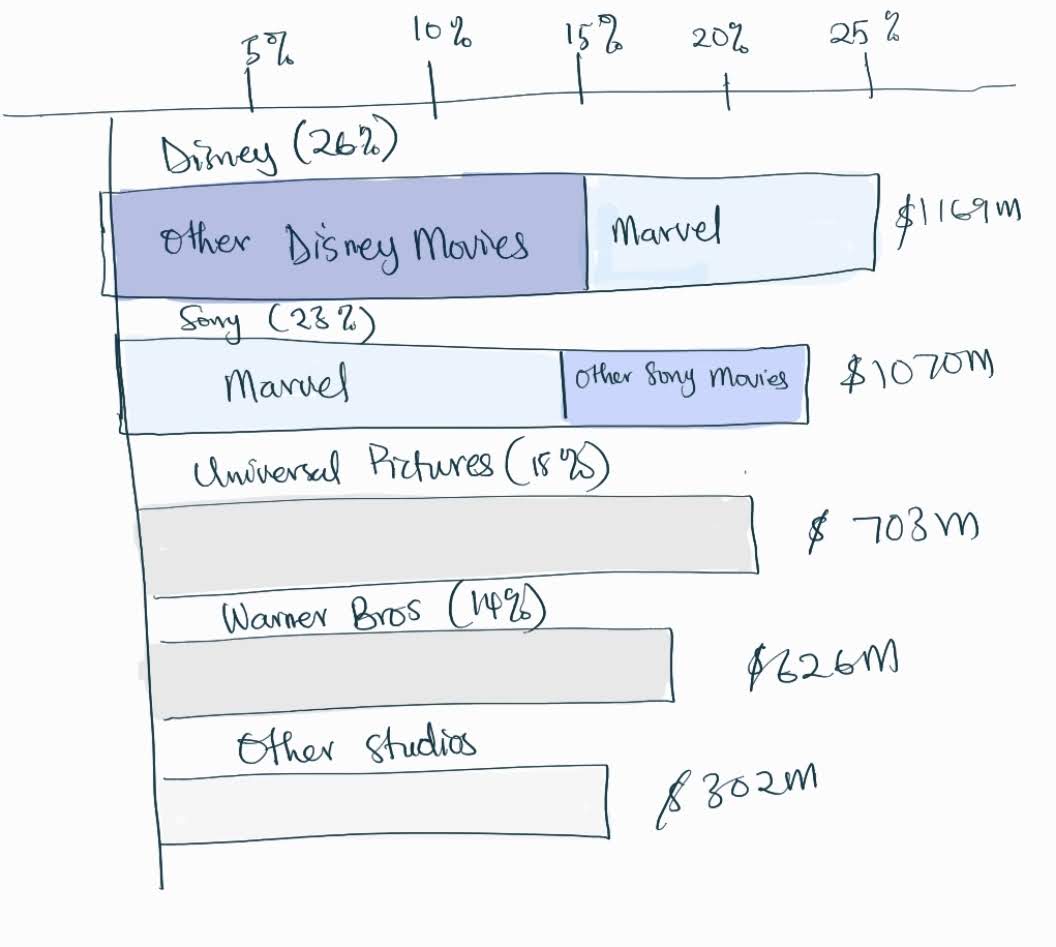 5% 10% 15% 20% 25%
Disney (26%)
Other Disney Movies Marvel $1169m
Sony (23%)
Marvel Other Sony Movies $1070M
Universal Pictures (15%)
$ 703M
Warner Bros (14%)
$626M
Other studios
$302M